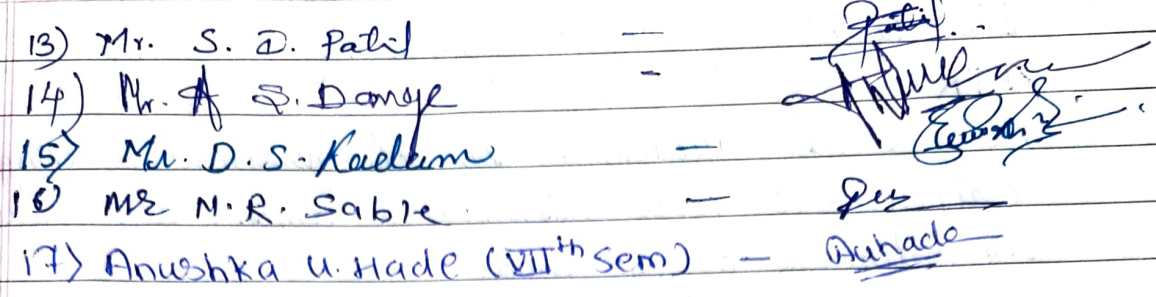 13) Mr. S. D. Patil — Patil
14) Mr. A S. Dange -
15) Mr. D. S. Kadam —
16) Mr M. R. Sable —
17) Anushka U. Hade (VIIth Sem) — Auhade